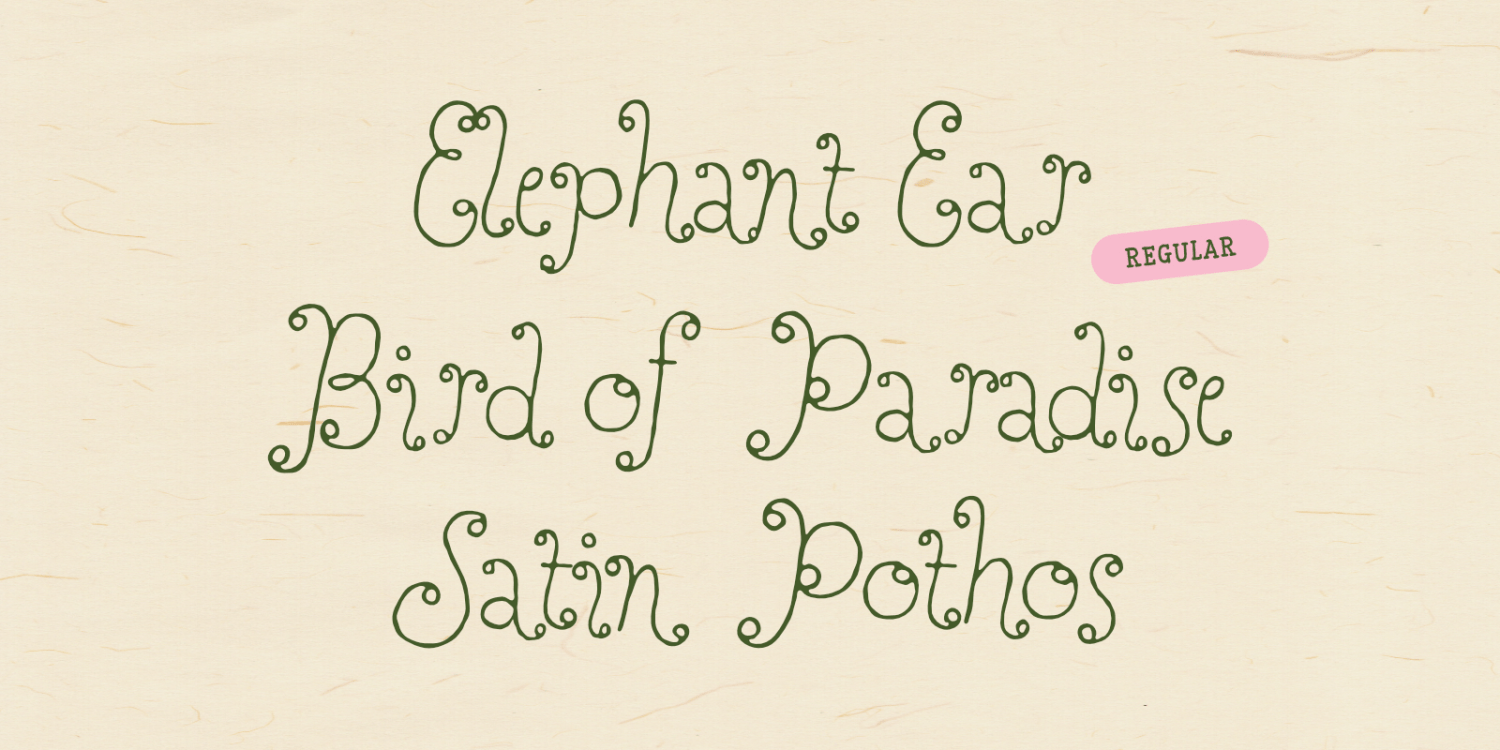 Elephant Ear
REGULAR
Bird of Paradise
Satin Pothos